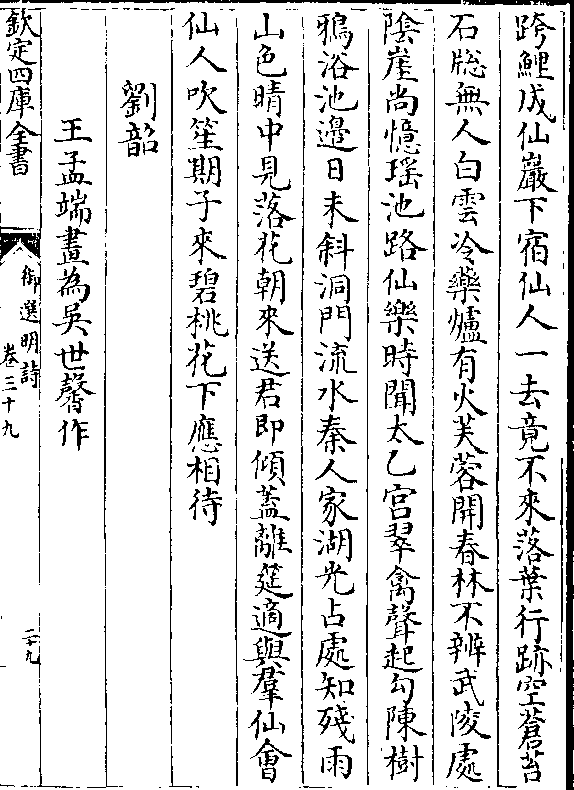 跨鯉成仙巖下宿仙人一去竟不來落葉行跡空蒼苔
石牕無人白雲冷藥爐有火芙蓉開春林不辨武陵處
陰崖尚憶瑶池路仙樂時聞太乙宫翠禽聲起勾陳樹
鵶浴池邉日未斜洞門流水秦人家湖光占處知殘雨
山色晴中見落花朝來送君即傾蓋離筵適與羣仙會
仙人吹笙期子來碧桃花下應相待
劉韶
王孟端畫為吳世馨作
欽定四庫全書
御選明詩
卷三十九
二十九